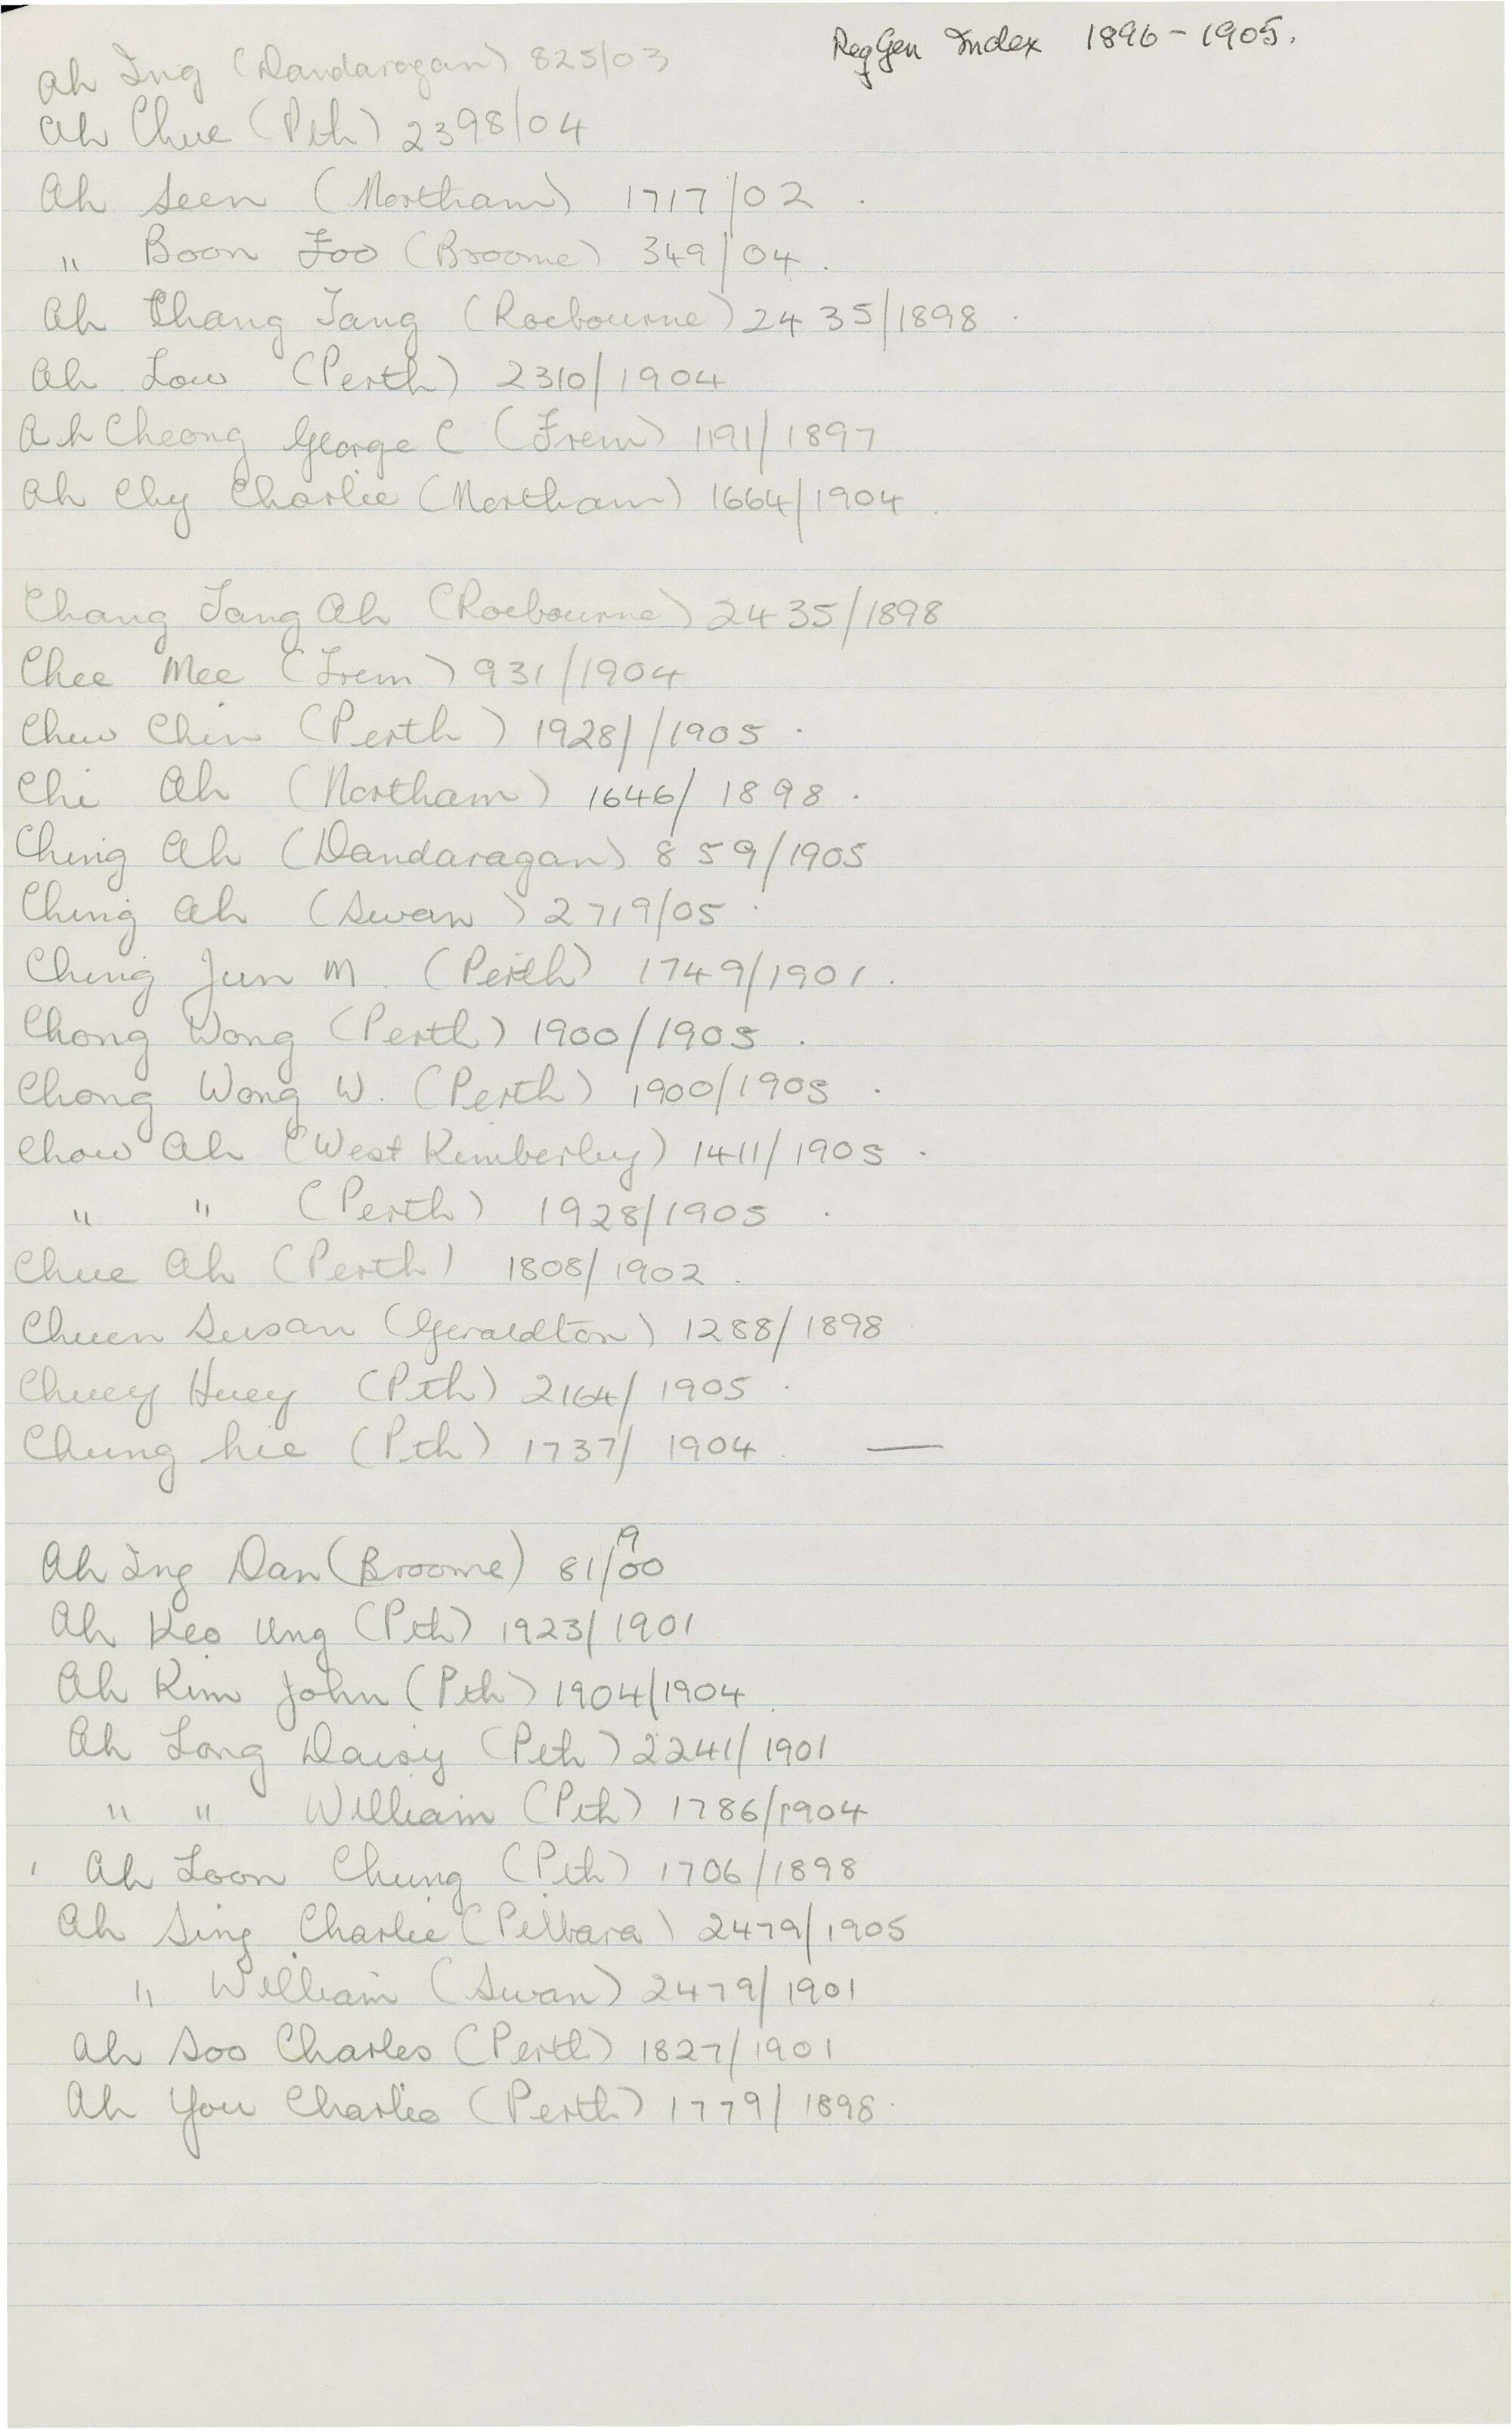 RegGen Index 1896-1905.
Ah Ing (Dandaragan) 825/03
Ah Chue (Pth) 2398/04
Ah Seen (Northam) 1717/02.
" Boon Foo (Broome) 349/04.
Ah Chang Tang (Roebourne) 2435/1898.
Ah Low (Perth) 2310/1904
Ah Cheong George C (Frem) 1191/1897
Ah Chy Charlie (Northam) 1664/1904.
Chang Tang Ah (Roebourne) 2435/1898
Chee Mee (Frem) 931/1904
Chew Chin (Perth) 1928//1905.
Chi Ah (Northam) 1646/1898.
Ching Ah (Dandaragan) 859/1905
Ching Ah (Swan) 2719/05.
Ching Jun M. (Perth) 1749/1901.
Chong Wong (Perth) 1900/1905.
Chong Wong W. (Perth) 1900/1905.
Chow Ah (West Kimberley) 1411/1905.
" " (Perth) 1928/1905.
Chue Ah (Perth) 1808/1902.
Chuen Susan (Geraldton) 1288/1898
Chuey Huey (Pth) 2164/1905.
Chung hee (Pth) 1737/1904. —
Ah Ing Dan (Broome) 81/1900
Ah Keo Ung (Pth) 1923/1901
Ah Kim John (Pth) 1904/1904.
Ah Long Daisy (Pth) 2241/1901
" " William (Pth) 1786/1904
Ah Loon Chung (Pth) 1706/1898
Ah Sing Charlie (Pilbara) 2479/1905
" William (Swan) 2479/1901
Ah Soo Charles (Perth) 1827/1901
Ah You Charlie (Perth) 1779/1898.